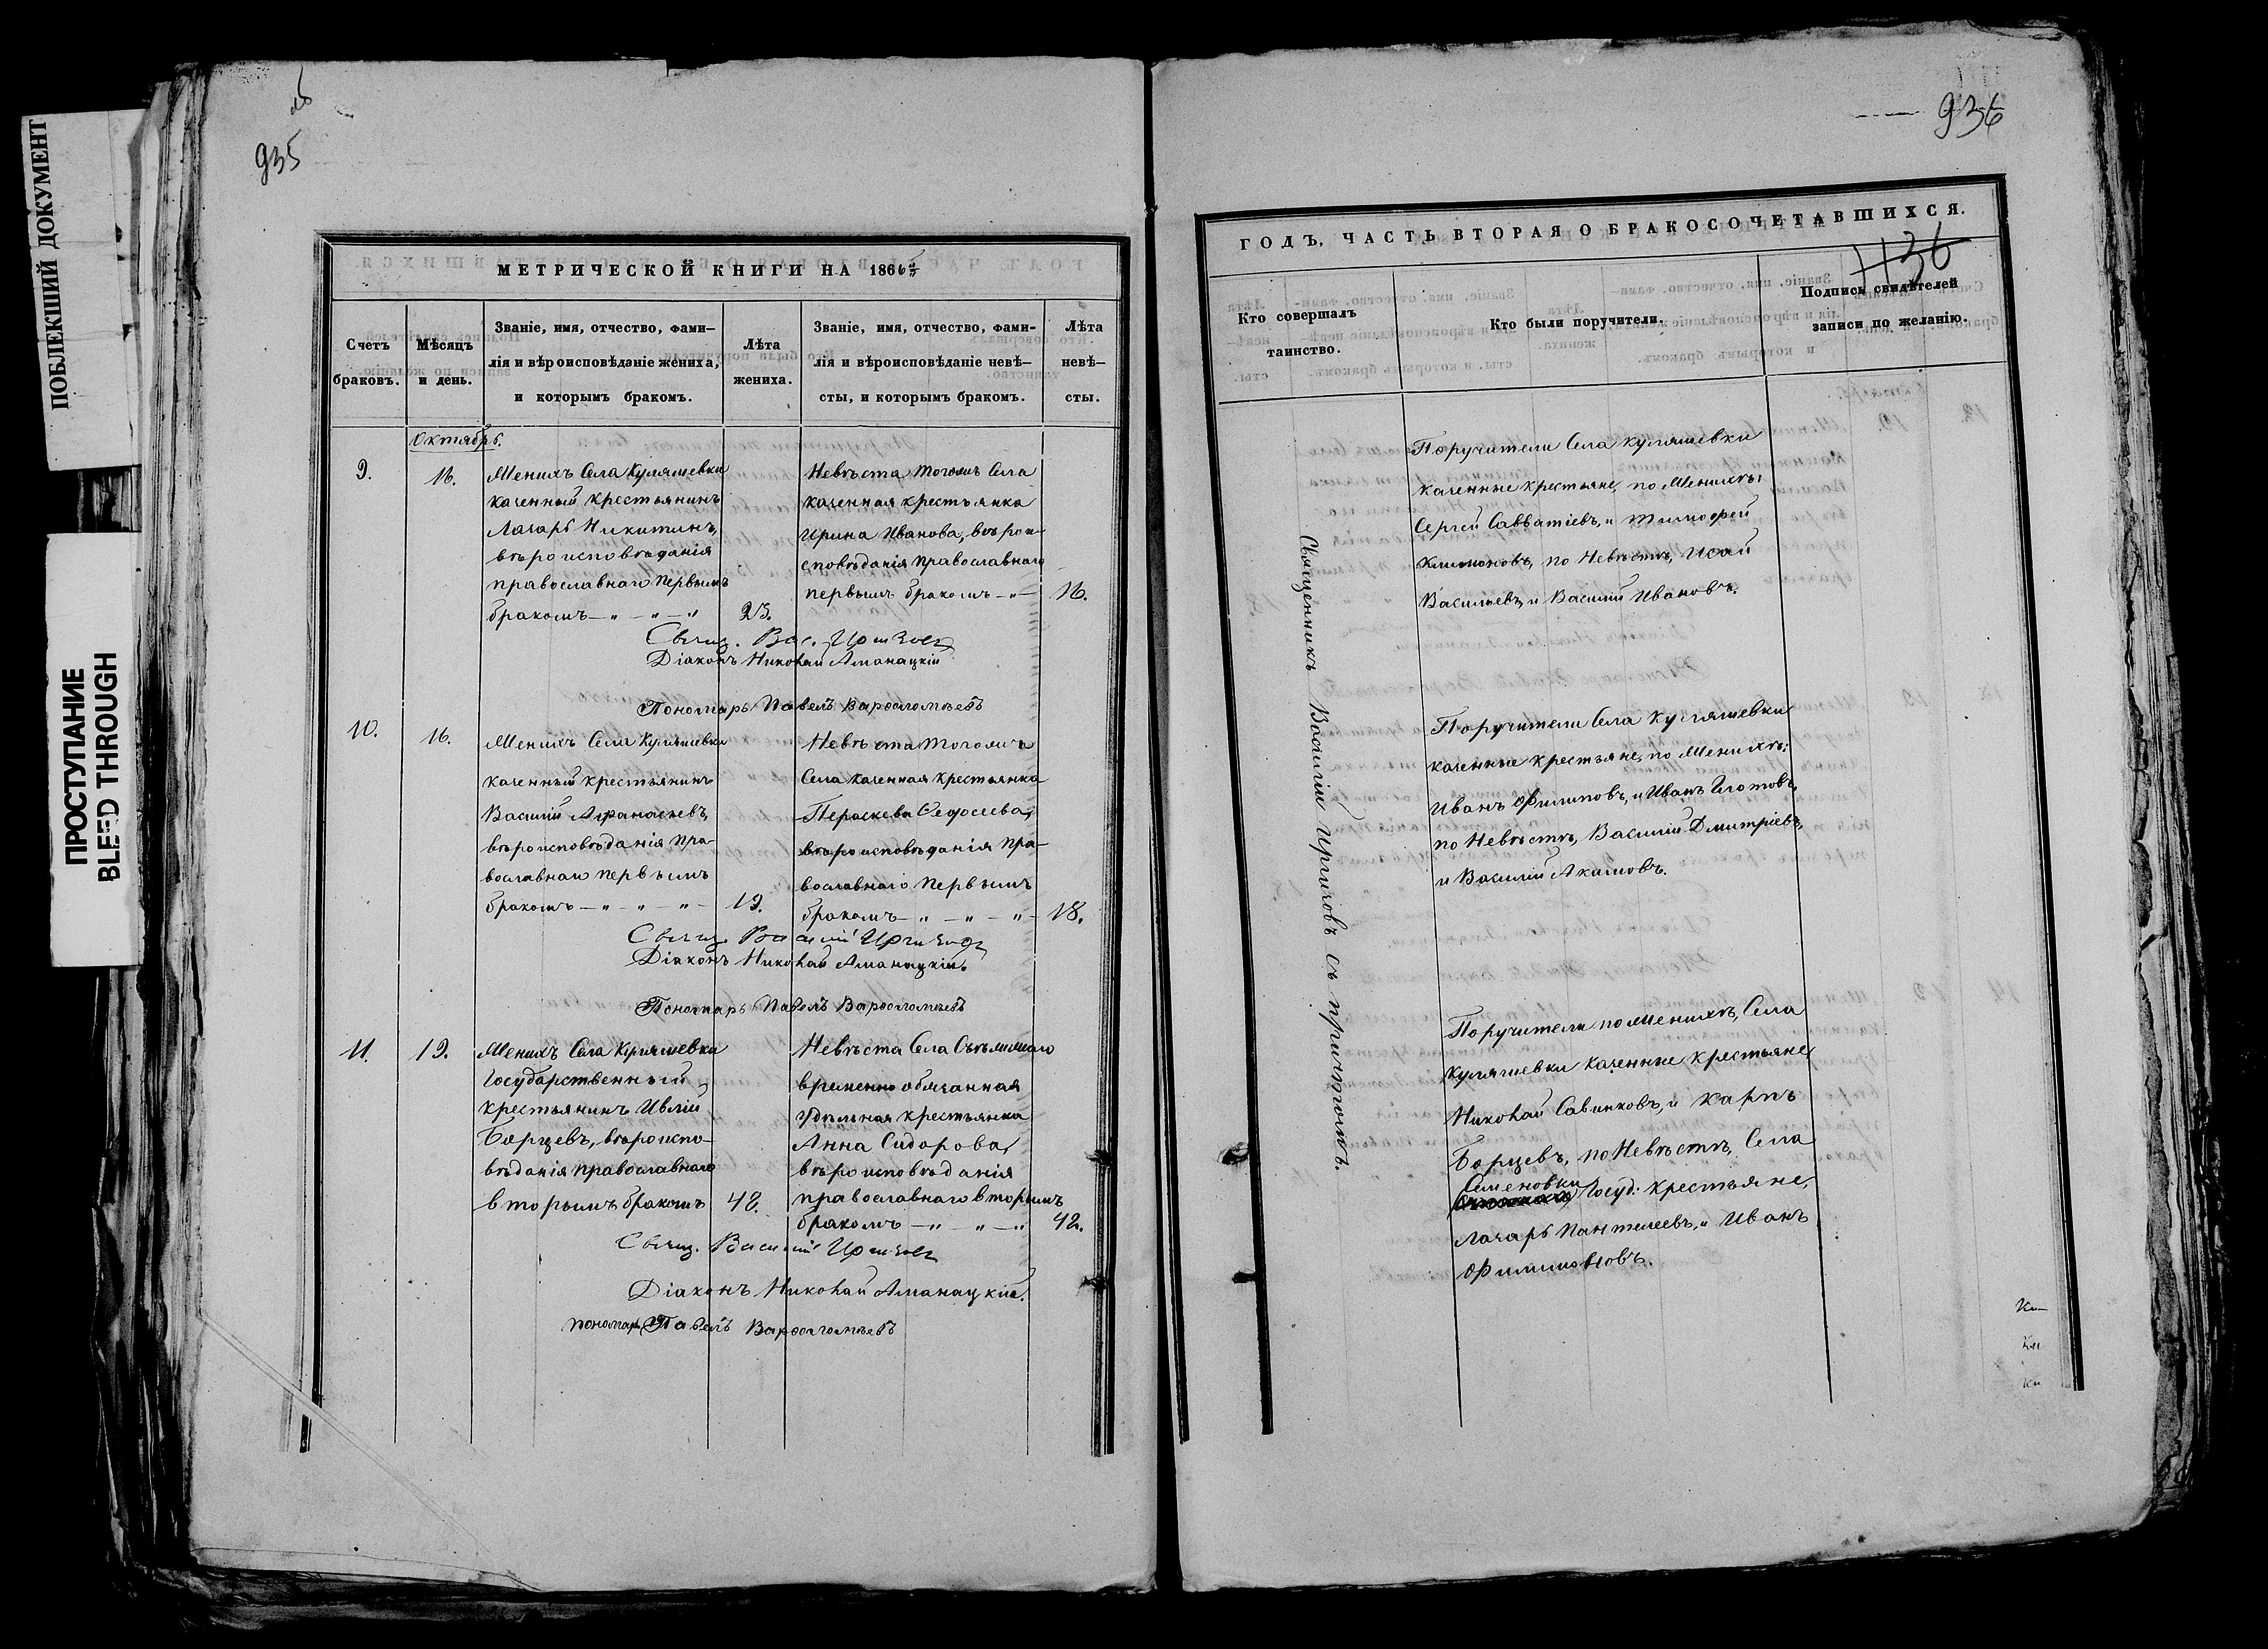 ПОБЛЕКШИЙ ДОКУМЕНТ
ПРОСТУПАНИЕ
BLEED THROUGH
935
МЕТРИЧЕСКОЙ КНИГИ НА 1866й
Счетъ браковъ.
Мѣсяцъ и день.
Званіе, имя, отчество, фами-
лія и вѣроисповѣданіе жениха,
и которымъ бракомъ.
Лѣта
жениха.
Званіе, имя, отчество, фами-
лія и вѣроисповѣданіе невѣ-
сты, и которымъ бракомъ.
Лѣта
невѣ-
сты.
Октябрь.
9.
16.
Женихъ Села Куляшевки
казенный крестьянинъ
Лазарь Никитинъ,
вѣроисповѣданія
православнаго первымъ
бракомъ — „ — „ — „
23.
Невѣста тогожъ Села
казенная крестьянка
Ирина Иванова, вѣрои-
сповѣданія православнаго
первымъ бракомъ — „ —
16.
Свящ. Вас. Иргизовъ
Діаконъ Николай Аманацкій
Пономарь Павелъ Варѳоломѣевъ
10.
16.
Женихъ Села Куляшевки
казенный крестьянинъ
Василій Афанасьевъ,
вѣроисповѣданія пра-
вославнаго первымъ
бракомъ — „ — „ — „ —
19.
Невѣста тогожъ
Села казенная крестьянка
Пераскева Ѳедосеева,
вѣроисповѣданія пра-
вославнаго первымъ
бракомъ — „ — „ — „ —
18.
Свящ. Василій Иргизовъ
Діаконъ Николай Аманацкій.
Пономарь Павелъ Варѳоломѣевъ
11.
19.
Женихъ Села Куляшевки
Государственный
крестьянинъ Ивлій
Борцевъ, вѣроиспо-
вѣданія православнаго
вторымъ бракомъ
48.
Невѣста Села
временно обязанная
удѣльная крестьянка
Анна Сидорова,
вѣроисповѣданія
православнаго вторымъ
бракомъ — „ — „ — „
42.
Свящ. Василій Иргизовъ
Діаконъ Николай Аманацкій.
Пономарь Павелъ Варѳоломѣевъ
936
1136
ГОДЪ, ЧАСТЬ ВТОРАЯ О БРАКОСОЧЕТАВШИХСЯ.
Кто совершалъ
таинство.
Кто были поручители.
Подпись свидѣтелей
записи по желанію.
Священникъ Василій Иргизовъ съ причтомъ.
Поручители Села Куляшевки
казенные крестьяне, по Женихѣ:
Сергей Савватіевъ, и Тимофей
Климоновъ, по Невѣстѣ, Исай
Васильевъ, и Василій Ивановъ.
Поручители Села Куляшевки
казенные крестьяне, по Женихѣ:
Иванъ Филиповъ, и Иванъ Изотовъ,
по Невѣстѣ, Василій Дмитріевъ,
и Василій Акимовъ.
Поручители по Женихѣ, Села
Куляшевки казенные крестьяне
Николай Савинковъ, и Карпъ
Борцевъ, по Невѣстѣ, Села
Семеновки
Госуд: крестьяне,
Лазарь Пантелеевъ, и Иванъ
Филимоновъ.